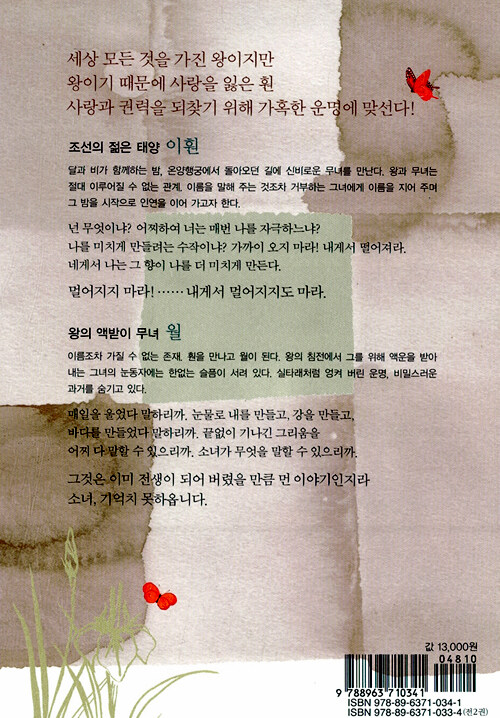 세상 모든 것을 가진 왕이지만
왕이기 때문에 사랑을 잃은 훤
사랑과 권력을 되찾기 위해 가혹한 운명에 맞선다!
조선의 젊은 태양 이훤
달과 비가 함께하는 밤, 온양행궁에서 돌아오던 길에 신비로운 무녀를 만난다. 왕과 무녀는
절대 이루어질 수 없는 관계. 이름을 말해 주는 것조차 거부하는 그녀에게 이름을 지어 주며
그 밤을 시작으로 인연을 이어 가고자 한다.
넌 무엇이냐? 어찌하여 너는 매번 나를 자극하느냐?
나를 미치게 만들려는 수작이냐? 가까이 오지 마라! 내게서 떨어져라.
네게서 나는 그 향이 나를 더 미치게 만든다.
멀어지지 마라! …… 내게서 멀어지지도 마라.
왕의 액받이 무녀 월
이름조차 가질 수 없는 존재. 훤을 만나고 월이 된다. 왕의 침전에서 그를 위해 액운을 받아
내는 그녀의 눈동자에는 한없는 슬픔이 서려 있다. 실타래처럼 엉켜 버린 운명, 비밀스러운
과거를 숨기고 있다.
매일을 울었다 말하리까. 눈물로 내를 만들고, 강을 만들고,
바다를 만들었다 말하리까. 끝없이 기나긴 그리움을
어찌 다 말할 수 있으리까. 소녀가 무엇을 말할 수 있으리까.
그것은 이미 전생이 되어 버렸을 만큼 먼 이야기인지라
소녀, 기억치 못하옵니다.
값 13,000원
04810
9 788963 710341
ISBN 978-89-6371-034-1
ISBN 978-89-6371-033-4 (전2권)